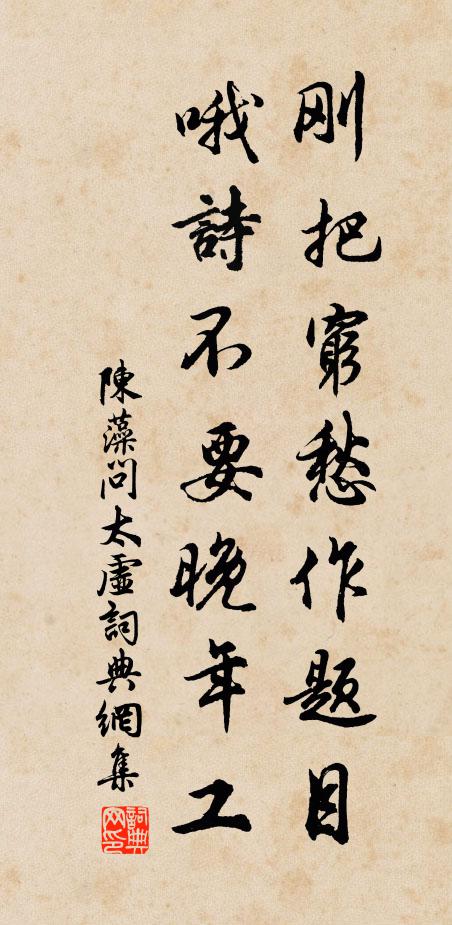 刚把窮愁作題目
哦詩不要晚年工
陳藻問太虛詞典網集
詞典網印